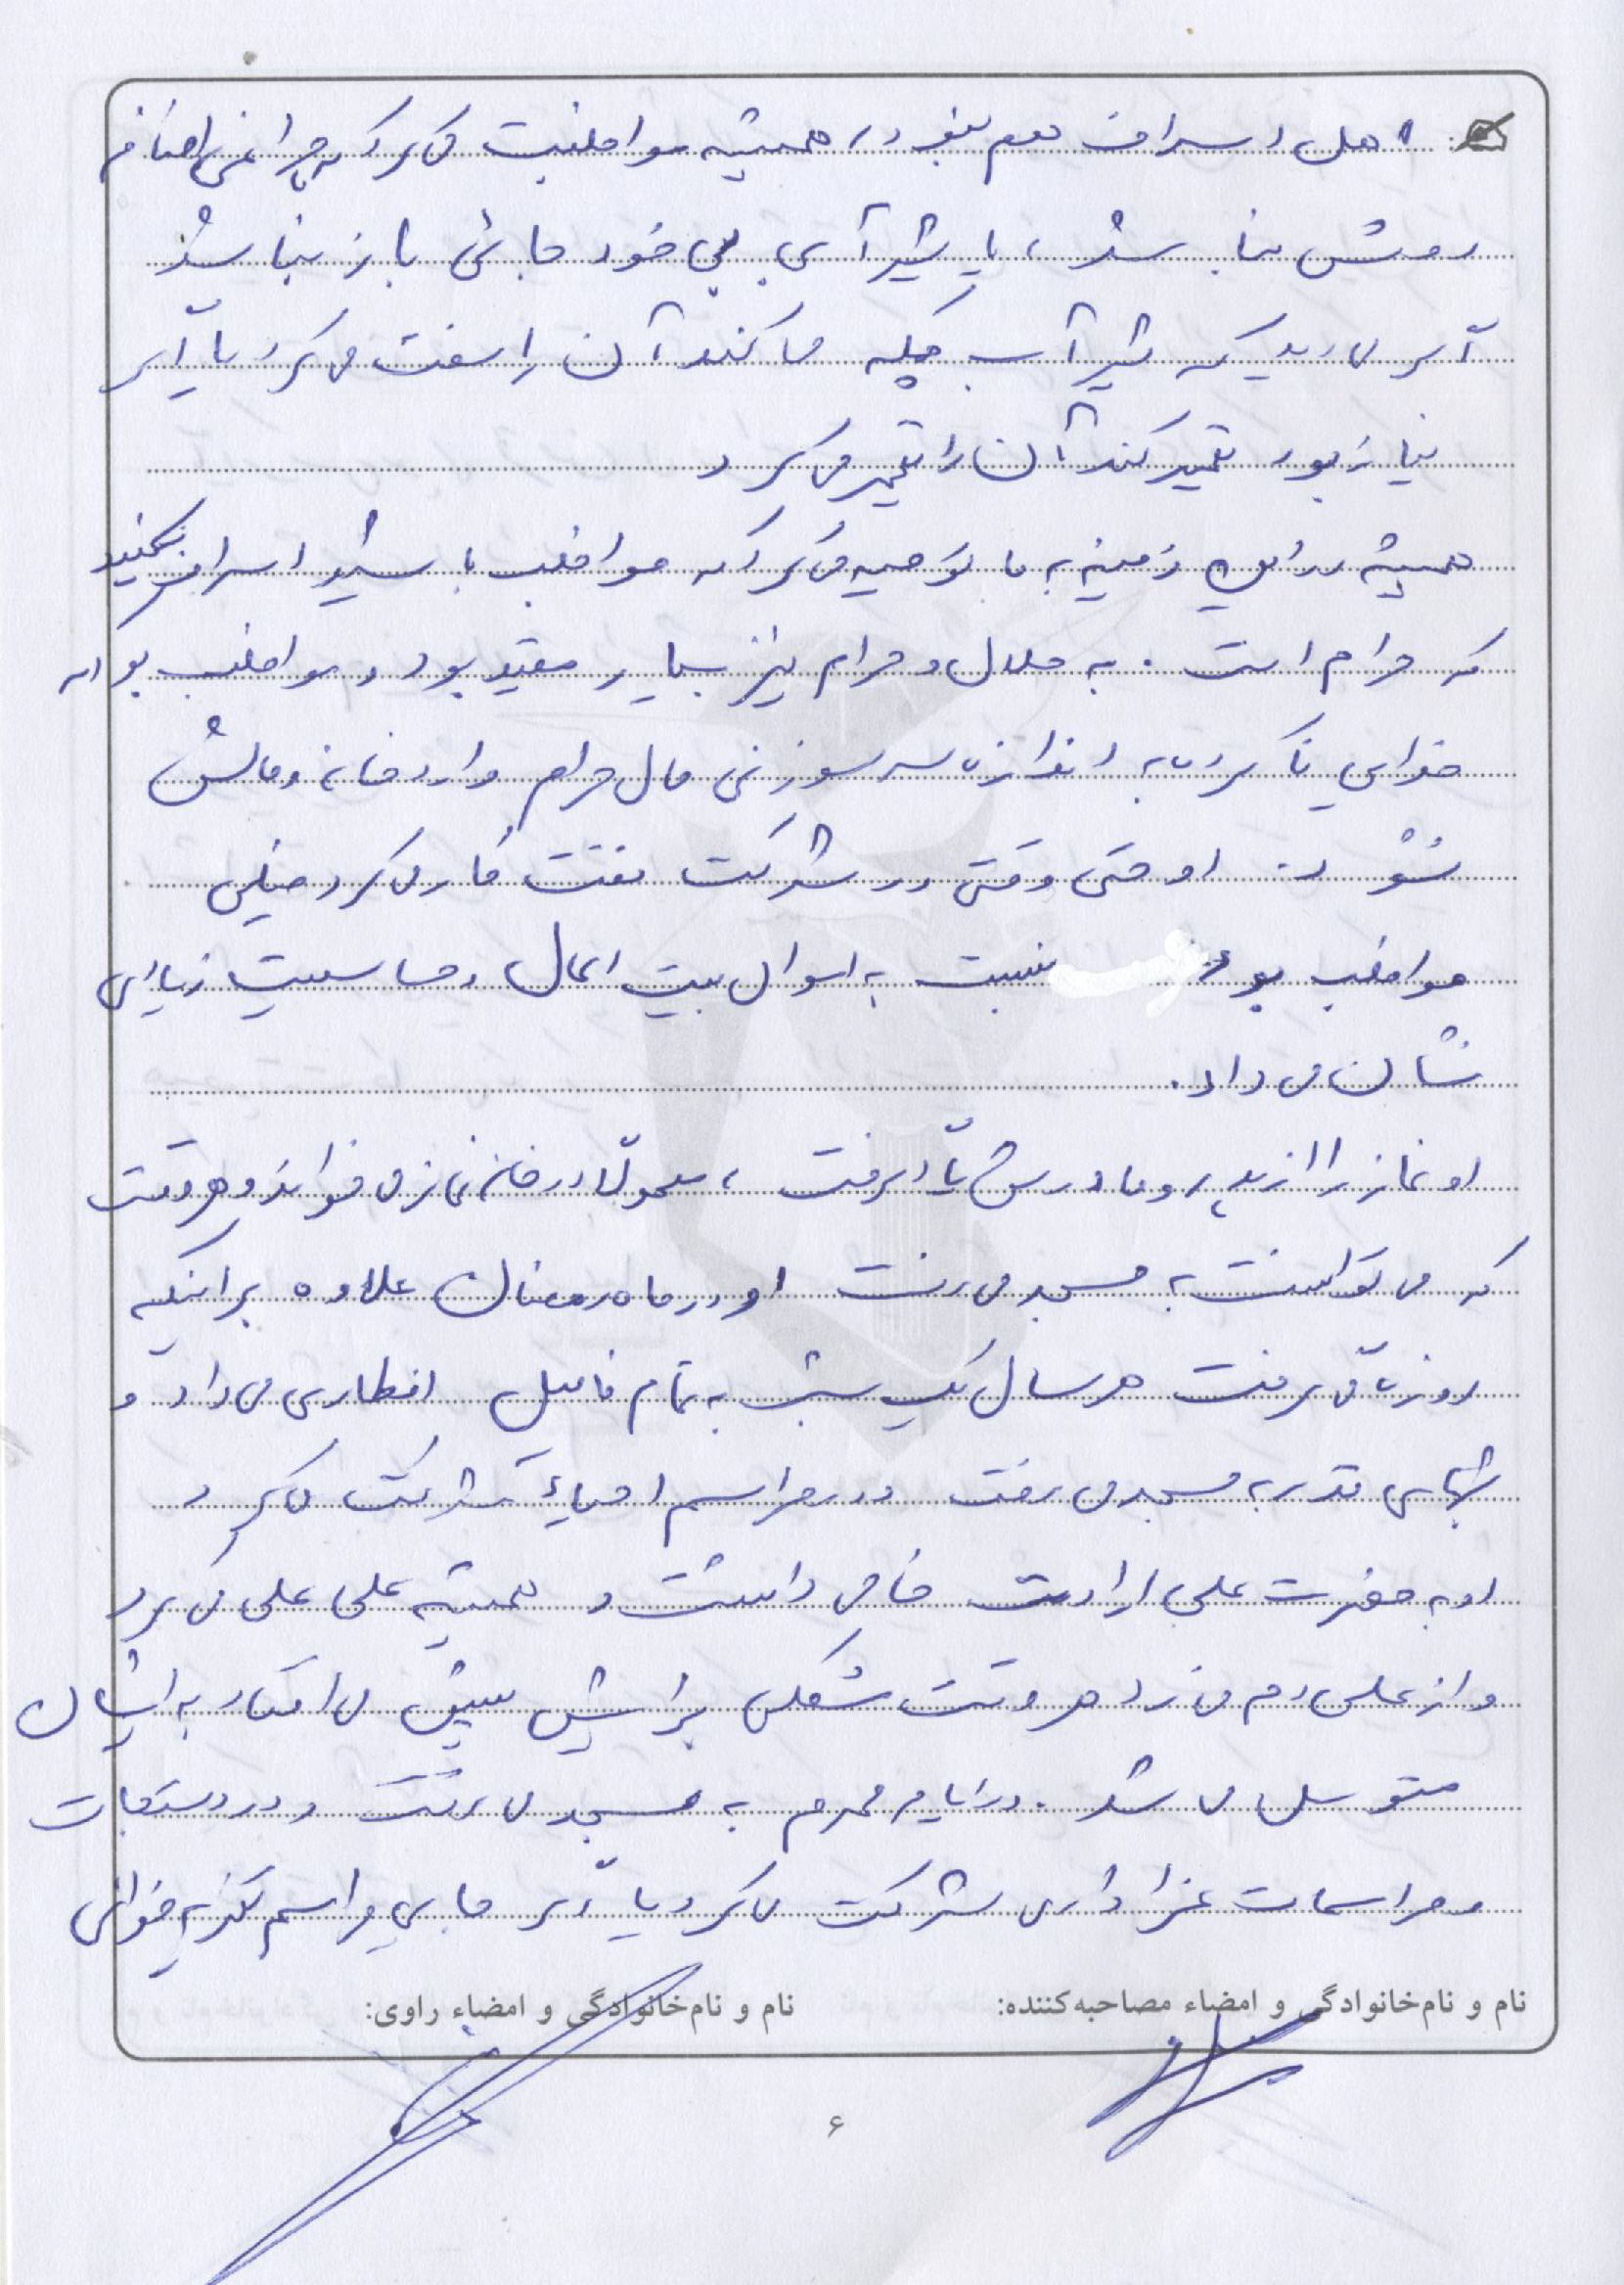 اهل اسراف هم نبود، همیشه مواظبت می‌کرد که چراغی اضافه
روشن نباشد، یا شیر آبی بی خود جائی باز نباشد
اگر می‌دید که شیر آب چکه می‌کند آن را سفت می‌کرد یا اگر
نیاز بود تعمیر کند آن را تعمیر می‌کرد
همیشه در این زمینه به ما توصیه می‌کرد که مواظب باشید اسراف نکنید
که حرام است. به حلال و حرام نیز بسیار مقید بود و مواظب بود که
خدای ناکرده به اندازه سر سوزنی مال حرام وارد خانه و مالش
نشود. او حتی وقتی در شرکت نفت کار می‌کرد خیلی
مواظب بود نسبت به اموال بیت المال و حساسیت زیادی
نشان می‌داد.
او نماز را از پدر و مادرش یاد گرفت، معمولاً در خانه نماز می‌خواند و هر وقت
که می‌توانست به مسجد می‌رفت او در ماه رمضان علاوه بر اینکه
روزه می‌گرفت هر سال یک شب به تمام فامیل افطاری می‌داد و
شبهای قدر به مسجد می‌رفت و در مراسم احیاء شرکت می‌کرد
او به حضرت علی ارادت خاصی داشت و همیشه علی علی می‌کرد
و از علی دم می‌زد هر وقت مشکلی برایش پیش می‌افتاد به ایشان
متوسل می‌شد. در ایام محرم به مسجد می‌رفت و در دستجات
و مراسمات عزاداری شرکت می‌کرد یا اگر جایی مراسم تعزیه خوانی
نام و نام‌خانوادگی و امضاء مصاحبه‌کننده: نام و نام‌خانوادگی و امضاء راوی:
۶